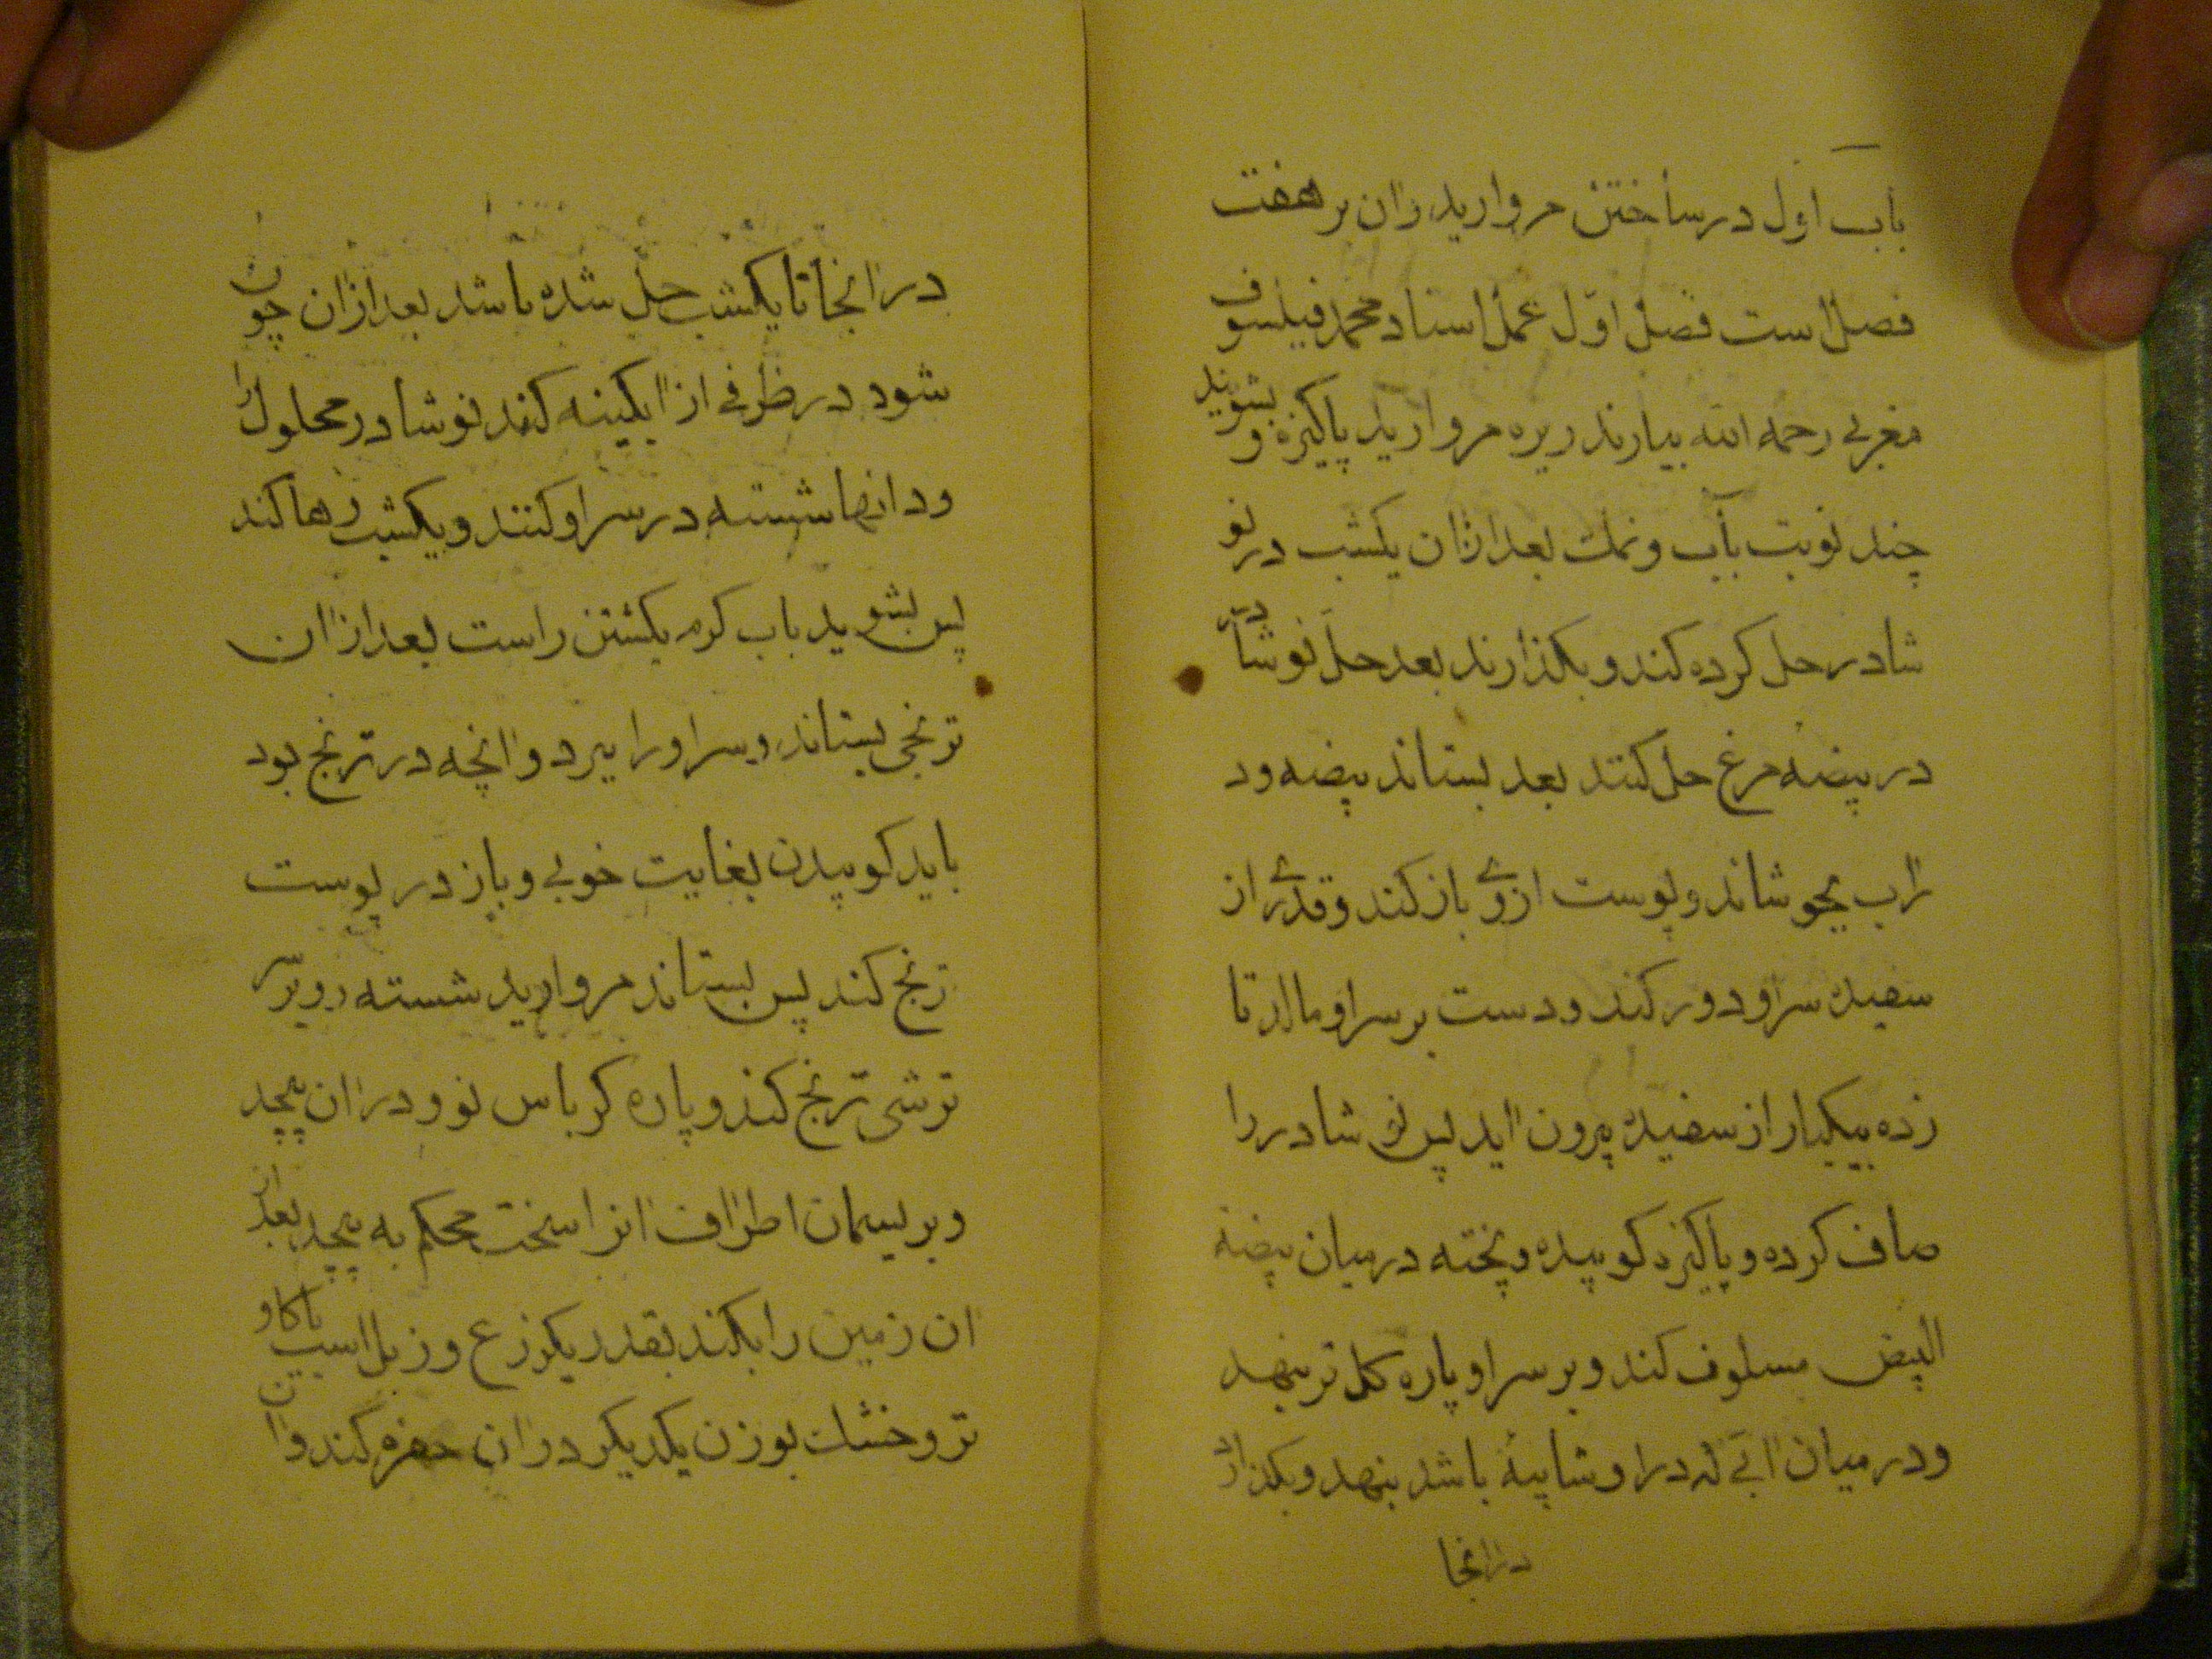 باب اول در ساختن مروارید و ان بر هفت
فصل است فصل اوّل عمل استاد محمد فیلسوف
مغربی رحمه الله بیارند ریزه مروارید پاکیزه و بشویند
چند نوبت بآب و نمک بعد ازان یکشب در نو
شادر حل کرده کند و بکذارند بعد حل نوشادر
در بیضه مرغ حل کنند بعد بستاند بیضه و د
راب بجوشاند و پوست ازوی باز کند و قدری از
سفیده سر او دور کند و دست بر سر او مالد تا
زده بیکبار از سفیده بیرون اید پس نوشادر را
صاف کرده و پاکیزه کوبیده و پخته در میان بیضه
البیض مسلوف کند و بر سر او پاره کل تر بنهد
و در میان ابی که در او شاپیه باشد بنهد و بکذارد
در انجا
در انجا تا یکشب حل شده باشد بعد ازان چون
شود در ظرفی از ابکینه کند نوشادر محلول را
و دانها شسته در سر او کنند و یکشب رها کند
پس بشوید باب کرم بکشتن راست بعد ازان
ترنجی بستاند و سر او را ببرد و انچه در ترنج بود
باید کوبیدن بغایت خوبی و باز در پوست
ترنج کند پس بستاند مروارید شسته و در
ترشی ترنج کند و پاره کرباس نو و در ان پیچد
و بریسمان اطراف انرا سخت محکم به پیچد بعد از
ان زمین را بکند بقدر یکزرع و زبل اسب با کاو
تر و خشک بوزن یکدیکر در ان حفره کند و ان